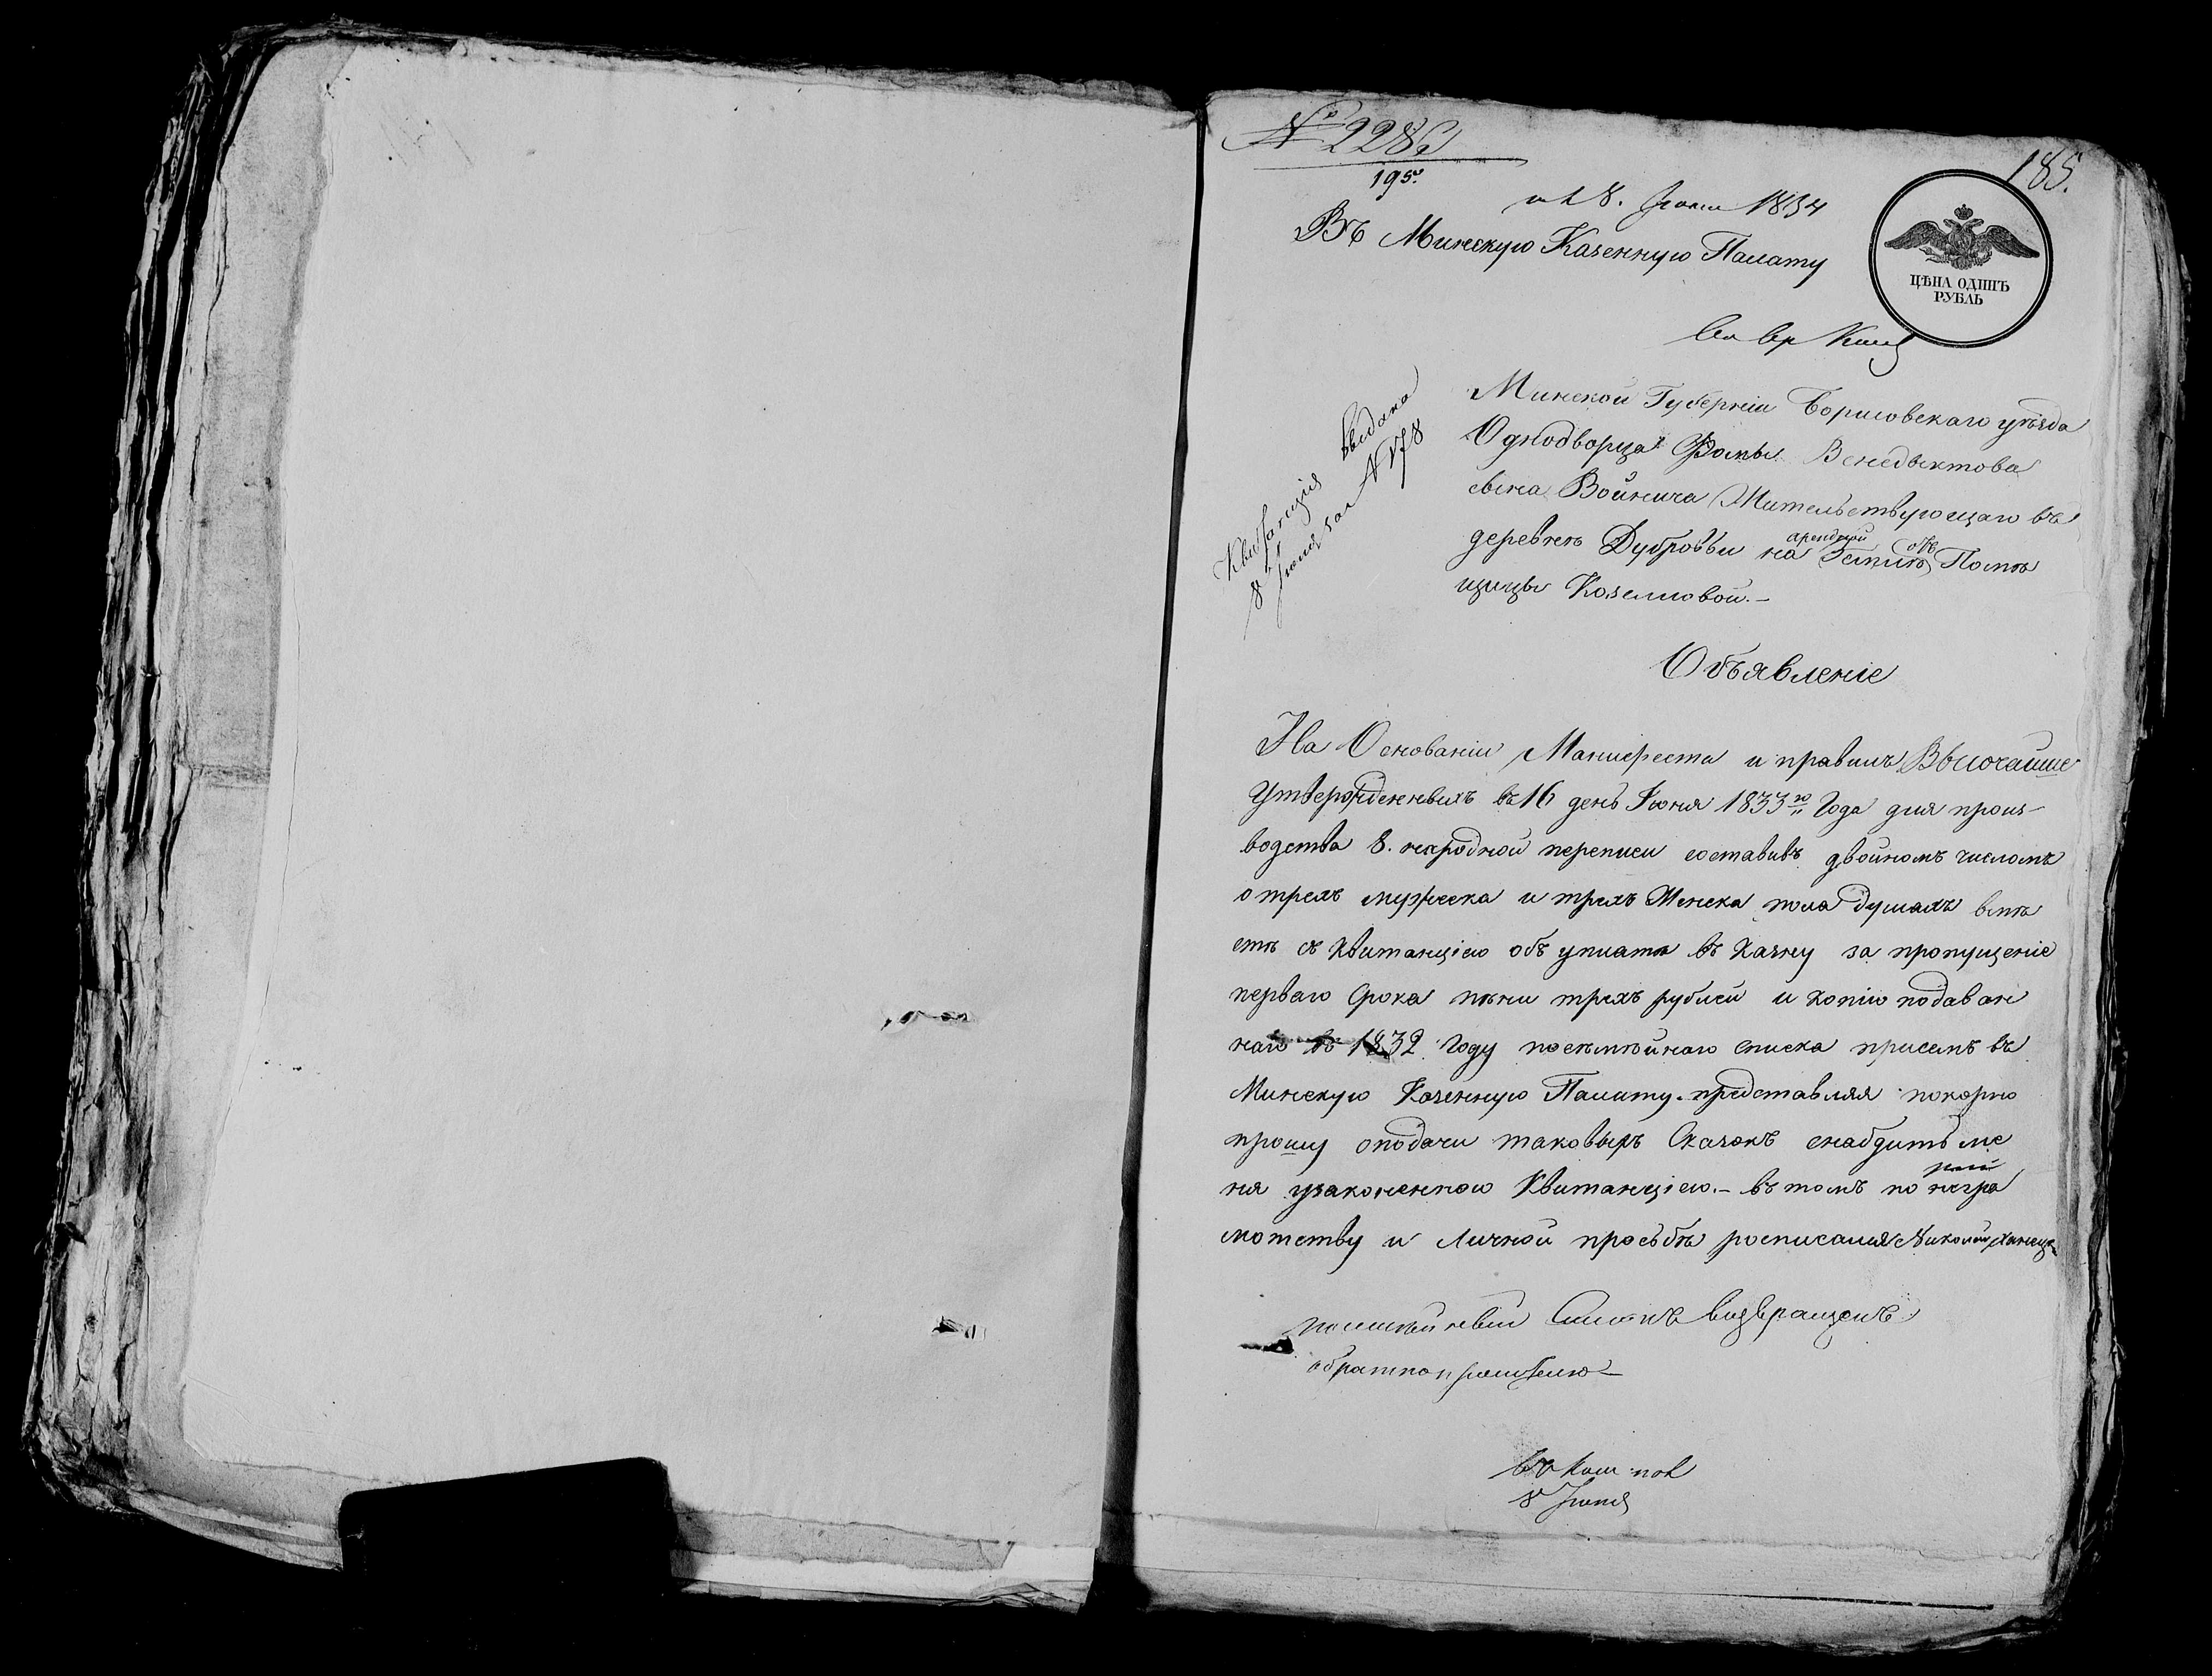 № 2286
195.
185.
8. Іюня 1834
Въ Минскую Казенную Палату
ЦѢНА ОДИНЪ
РУБЛЬ
Квитанція выдана
8 Іюня за № 178
Минской Губерніи Борисовскаго уѣзда
Однодворца Фомы Венедыктова
сына Войнича Жительствующаго въ
деревнѣ Дубровы на арендной Землѣ отъ Помѣ
щицы Козелловой.-
Объявленіе
На Основаніи Манифеста и правилъ Высочайше
Утвержденныхъ въ 16 день Іюня 1833го Года для произ-
водства 8. народной переписи составивъ двойномъ числомъ
о трехъ мужеска и трехъ Женска пола душахъ вмѣ
стѣ съ Квитанціею объ уплатѣ въ Казну за пропущеніе
перваго Срока пѣни трехъ рублей и копію подаван
наго въ 1832 Году посемѣйнаго списка присемъ въ
Минскую Казенную Палату представляя покорно
прошу оподачи таковыхъ Сказокъ снабдить ме
ня узаконенною Квитанціею.- въ томъ по негра
мотству и Личной просьбѣ росписался Николай
посемѣйный Списокъ возвращенъ
обратно просителю
8 Іюня